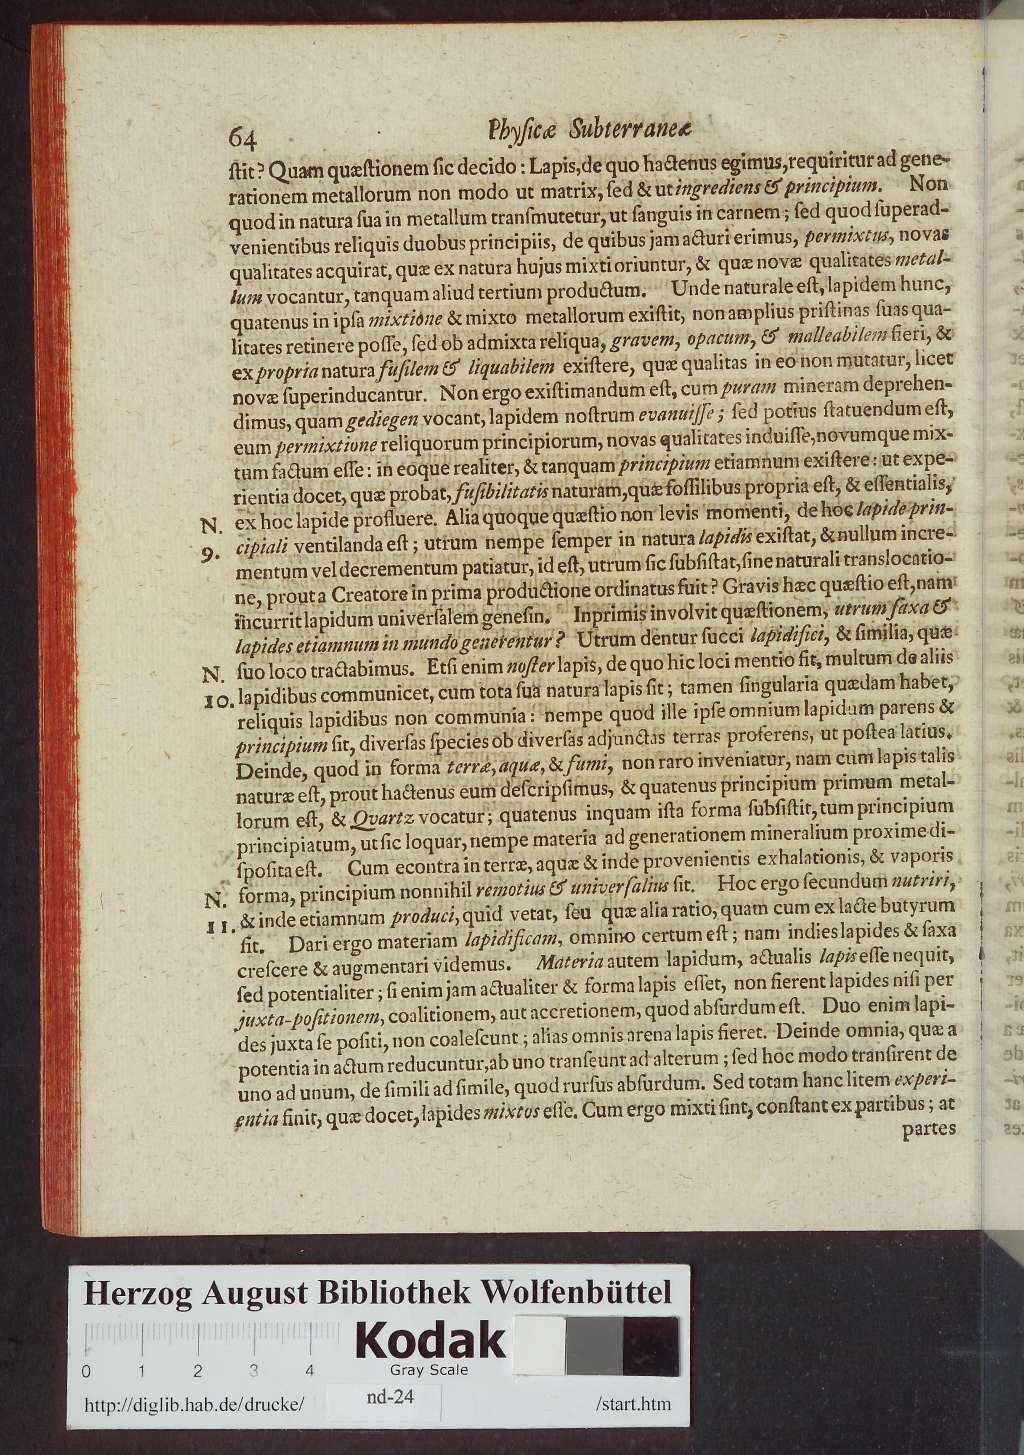 64 Phyſicæ Subterraneæ
ſtit? Quam quæſtionem ſic decido: Lapis, de quo hactenus egimus, requiritur ad gene-
rationem metallorum non modo ut matrix, ſed & ut ingrediens & principium. Non
quod in natura ſua in metallum tranſmutetur, ut ſanguis in carnem; ſed quod ſuperad-
venientibus reliquis duobus principiis, de quibus jam acturi erimus, permixtus, novas
qualitates acquirat, quæ ex natura hujus mixti oriuntur, & quæ novæ qualitates metal-
lum vocantur, tanquam aliud tertium productum. Unde naturale eſt, lapidem hunc,
quatenus in ipſa mixtione & mixto metallorum exiſtit, non amplius priſtinas ſuas qua-
litates retinere poſſe, ſed ob admixta reliqua, gravem, opacum, & malleabilem fieri, &
ex propria natura fuſilem & liquabilem exiſtere, quæ qualitas in eo non mutatur, licet
novæ ſuperinducantur. Non ergo exiſtimandum eſt, cum puram mineram deprehen-
dimus, quam gediegen vocant, lapidem noſtrum evanuiſſe; ſed potius ſtatuendum eſt,
eum permixtione reliquorum principiorum, novas qualitates induiſſe, novumque mix-
tum factum eſſe: in eoque realiter, & tanquam principium etiamnum exiſtere: ut expe-
rientia docet, quæ probat, fuſibilitatis naturam, quæ foſſilibus propria eſt, & eſſentialis,
N. ex hoc lapide profluere. Alia quoque quæſtio non levis momenti, de hoc lapide prin-
9. cipiali ventilanda eſt; utrum nempe ſemper in natura lapidis exiſtat, & nullum incre-
mentum vel decrementum patiatur, id eſt, utrum ſic ſubſiſtat, ſine naturali translocatio-
ne, prout a Creatore in prima productione ordinatus fuit? Gravis hæc quæſtio eſt, nam
incurrit lapidum univerſalem geneſin. Inprimis involvit quæſtionem, utrum ſaxa &
lapides etiamnum in mundo generentur? Utrum dentur ſucci lapidifici, & ſimilia, quæ
N. ſuo loco tractabimus. Etſi enim noſter lapis, de quo hic loci mentio fit, multum de aliis
10. lapidibus communicet, cum tota ſua natura lapis ſit; tamen ſingularia quædam habet,
reliquis lapidibus non communia: nempe quod ille ipſe omnium lapidum parens &
principium ſit, diverſas ſpecies ob diverſas adjunctas terras proferens, ut poſtea latius.
Deinde, quod in forma terræ, aquæ, & fumi, non raro inveniatur, nam cum lapis talis
naturæ eſt, prout hactenus eum deſcripſimus, & quatenus principium primum metal-
lorum eſt, & Qvartz vocatur; quatenus inquam iſta forma ſubſiſtit, tum principium
principiatum, ut ſic loquar, nempe materia ad generationem mineralium proxime di-
ſpoſita eſt. Cum econtra in terræ, aquæ & inde provenientis exhalationis, & vaporis
N. forma, principium nonnihil remotius & univerſalius ſit. Hoc ergo ſecundum nutriri,
11. & inde etiamnum produci, quid vetat, ſeu quæ alia ratio, quam cum ex lacte butyrum
fit. Dari ergo materiam lapidificam, omnino certum eſt; nam indies lapides & ſaxa
creſcere & augmentari videmus. Materia autem lapidum, actualis lapis eſſe nequit,
ſed potentialiter; ſi enim jam actualiter & forma lapis eſſet, non fierent lapides niſi per
juxta-poſitionem, coalitionem, aut accretionem, quod abſurdum eſt. Duo enim lapi-
des juxta ſe poſiti, non coaleſcunt; alias omnis arena lapis fieret. Deinde omnia, quæ a
potentia in actum reducuntur, ab uno tranſeunt ad alterum; ſed hoc modo tranſirent de
uno ad unum, de ſimili ad ſimile, quod rurſus abſurdum. Sed totam hanc litem experi-
entia finit, quæ docet, lapides mixtos eſſe. Cum ergo mixti ſint, conſtant ex partibus; at
partes
Herzog August Bibliothek Wolfenbüttel
Kodak
0 1 2 3 4 Gray Scale
http://diglib.hab.de/drucke/ nd-24 /start.htm